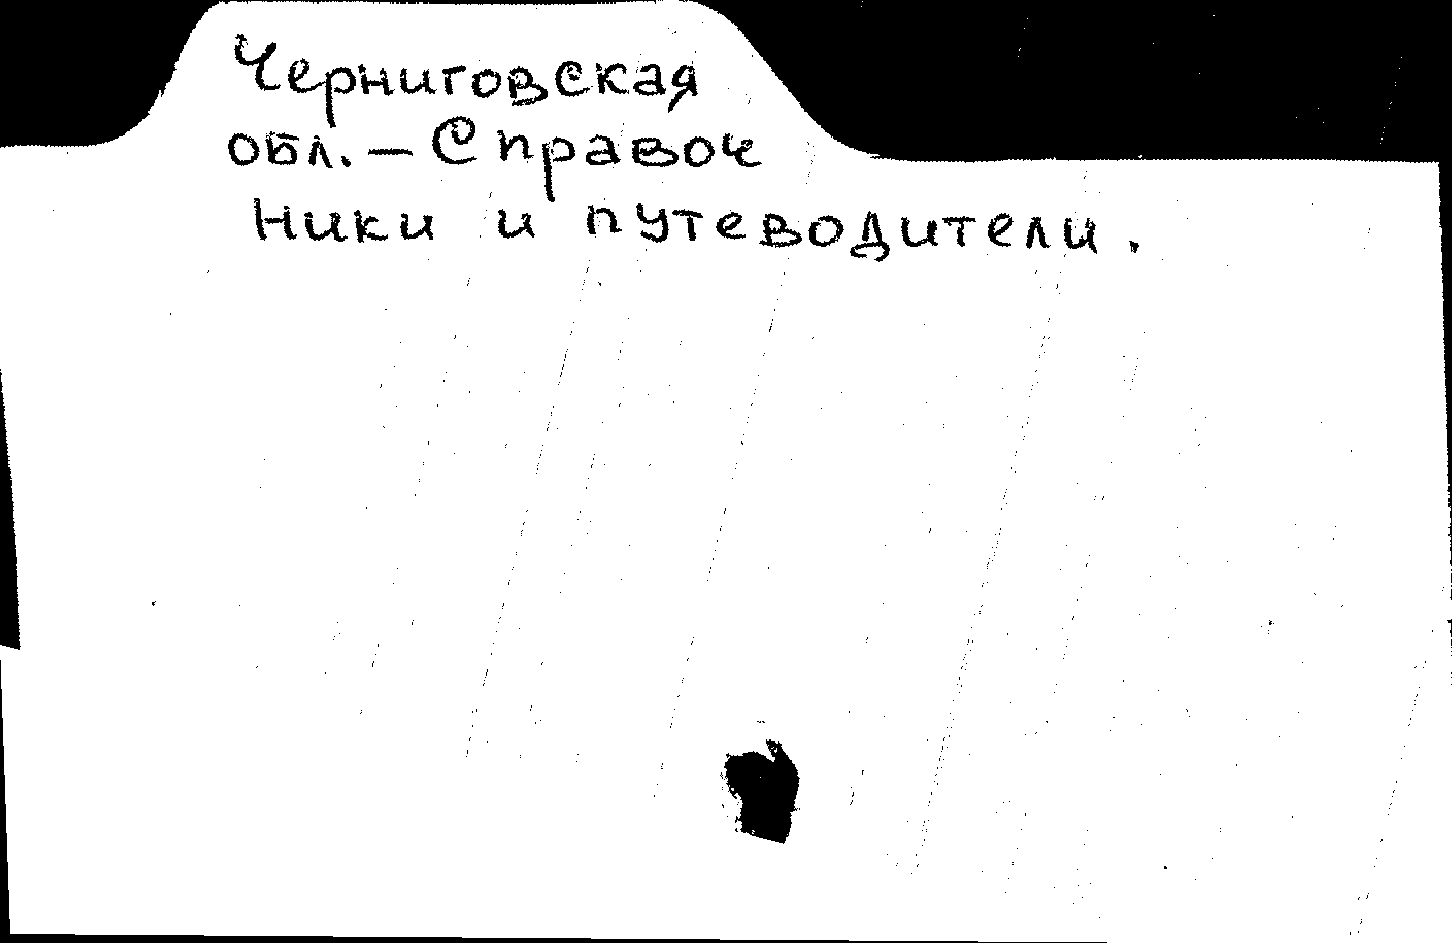 Черниговская
обл. – Справоч
ники и путеводители.